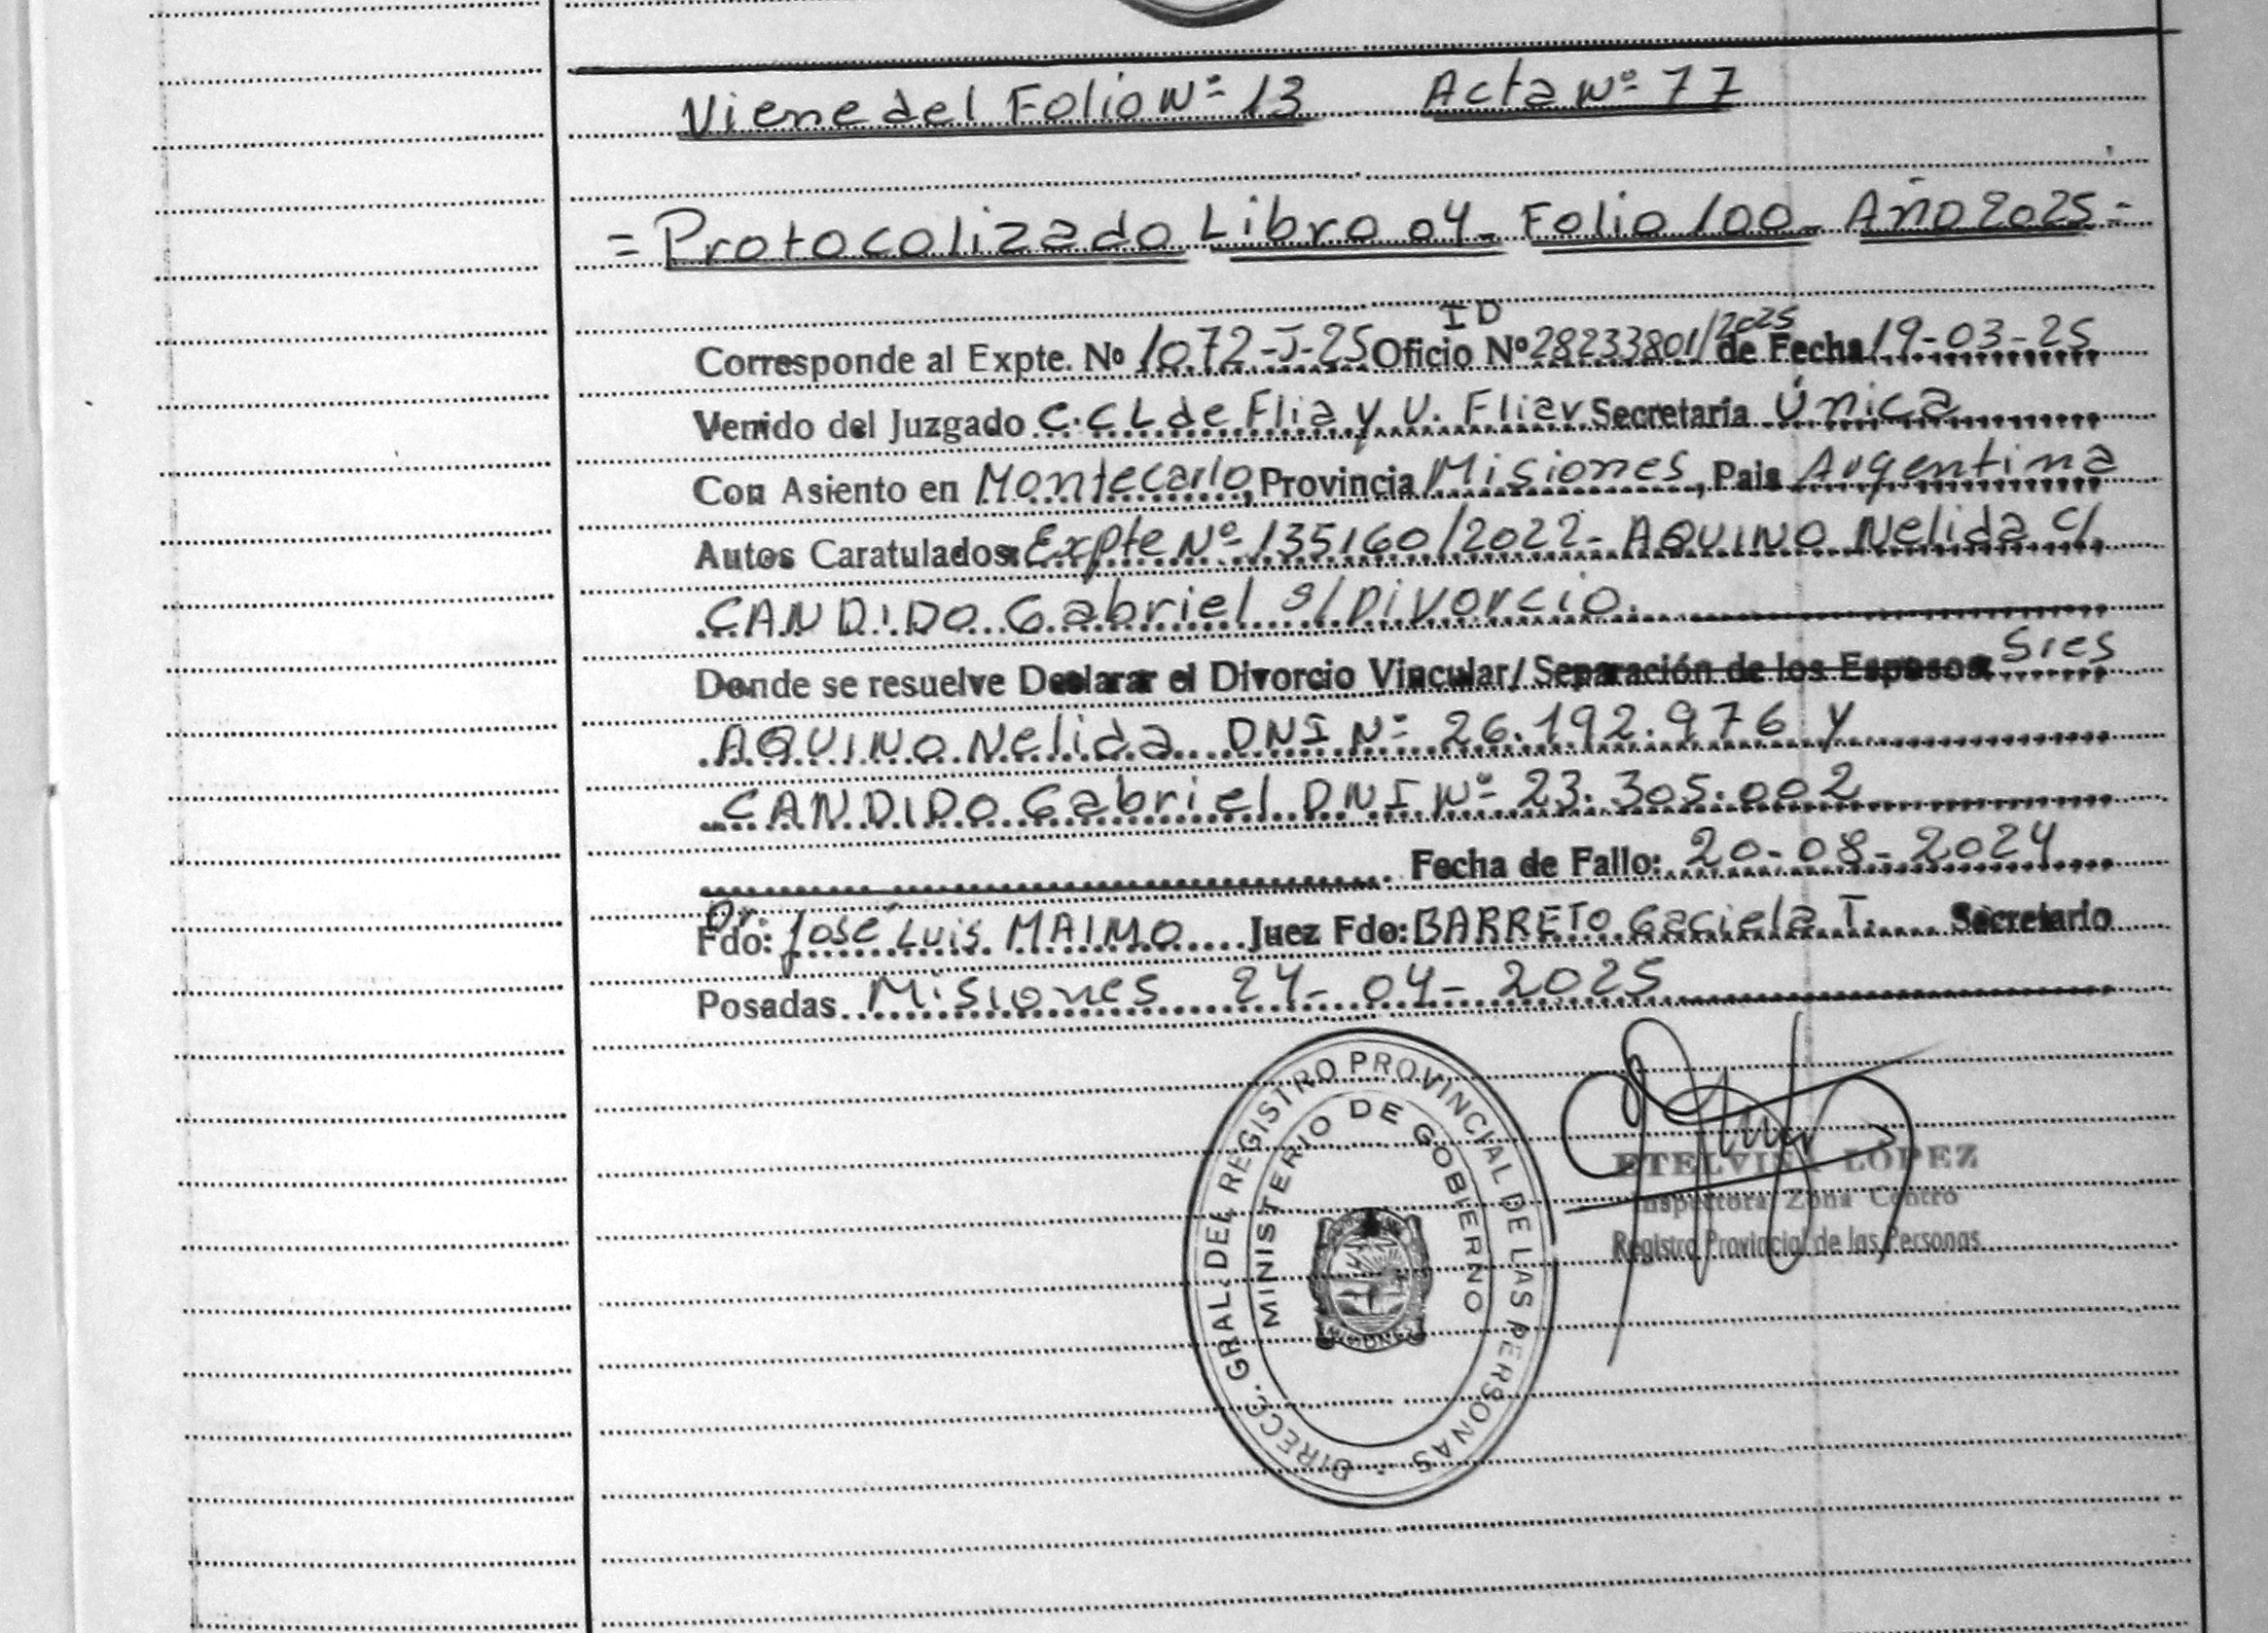 Viene del Folio Nº 13 Acta Nº 77
= Protocolizado Libro 04- Folio 100- Año 2025 =
ID
Corresponde al Expte. Nº 1072-J-25 Oficio Nº 28233801/2025 de Fecha 19-03-25
Venido del Juzgado C.C L de Flia y V. Fliar Secretaría Única
Con Asiento en Montecarlo, Provincia Misiones, Pais Argentina
Autos Caratulados: Expte Nº 135160/2022- AQUINO Nelida c/
CANDIDO Gabriel s/ Divorcio.
Donde se resuelve Declarar el Divorcio Vincular/ Separación de los Esposos: Sres
AQUINO Nelida DNI Nº 26.192.976 y
CANDIDO Gabriel DNI Nº 23.305.002
Fecha de Fallo: 20-08-2024
Dr.
Fdo: José Luis MAIMO Juez Fdo: BARRETO Gaciela T. Secretario
Posadas Misiones 24-04-2025
DIRECC. GRAL. DEL REGISTRO PROVINCIAL DE LAS PERSONAS
MINISTERIO DE GOBIERNO
MISIONES
ETELVINA LOPEZ
Inspectora Zona Centro
Registro Provincial de las Personas